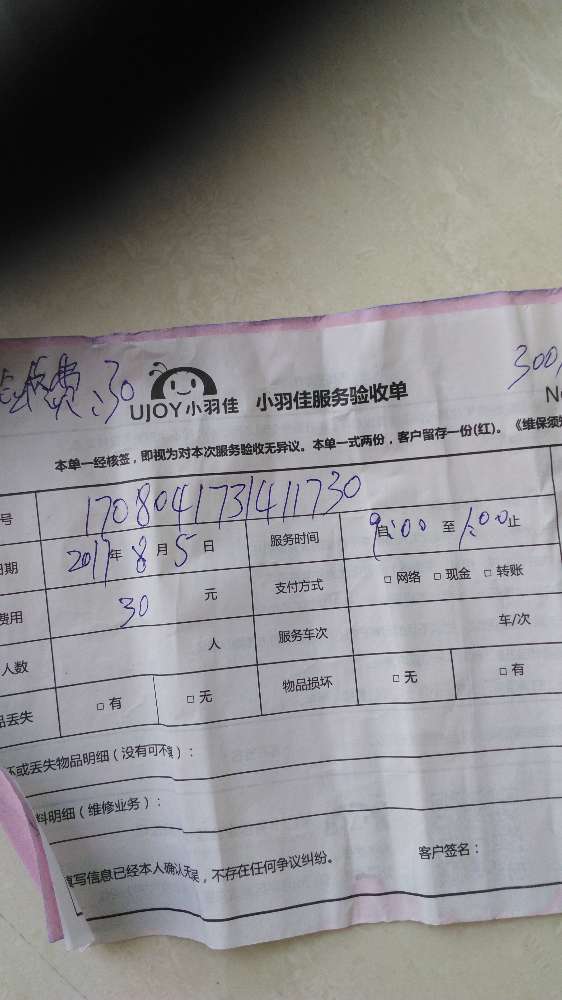 费:30
UJOY小羽佳 小羽佳服务验收单
300
本单一经核签，即视为对本次服务验收无异议。本单一式两份，客户留存一份(红)。《维保须知
号 170804173141730
日期 2017年8月5日 服务时间 自9:00至1:00止
费用 30 元 支付方式 □ 网络 □ 现金 □ 转账
人数 人 服务车次 车/次
品丢失 □ 有 □ 无 物品损坏 □ 无 □ 有
坏或丢失物品明细（没有可不填）：
料明细（维修业务）：
填写信息已经本人确认无误，不存在任何争议纠纷。 客户签名：